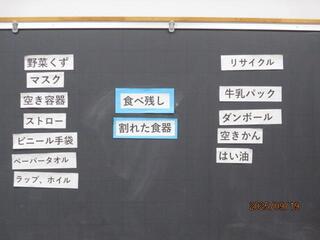 野菜くず
マスク
空き容器
ストロー
ビニール手袋
ペーパータオル
ラップ、ホイル
食べ残し
割れた食器
リサイクル
牛乳パック
ダンボール
空きかん
はい油
2025/09/19